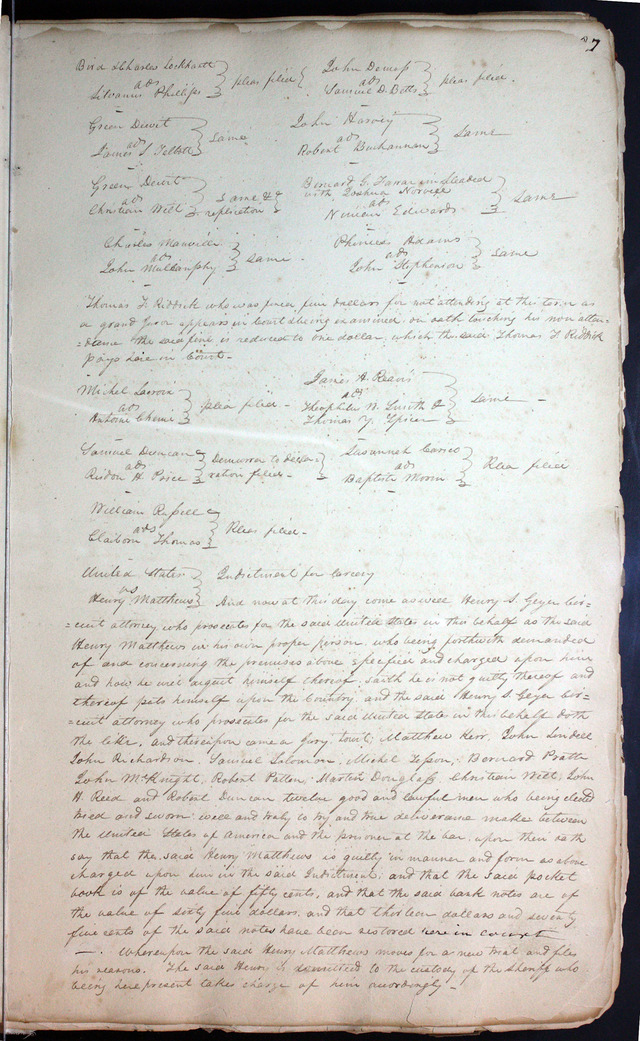 27
Bird & Charles Lockhartt
ads
Silvanus Phillips } pleas filed
John Dewess
ads
Samuel D. Betts } pleas filed.
Green Dewit
ads
James S. Tellott } Same
John Harvey
ads
Robert Buchannan } Same
Green Dewit
ads
Christian Witt } Same & replication
Bernard G. Farrar impleaded
with Joshua Norvell
ads
Ninian Edwards } Same
Charles Manville
ads
John Mullanphy } Same.
Phineas Adams
ads
John Stephenson } Same
Thomas F. Riddick who was fined five dollars for not attending at this term as
a grand Juror appears in Court & being examined on oath touching his non atten-
=dance the said fine is reduced to one dollar, which the said Thomas F. Riddick
pays here in Court -
Michel Lacroix
ads
Antoine Chenie } plea filed -
James H. Reavis
ads
Theophilus W. Smith &
Thomas Y. Spicer } Same -
Samuel Duncan
ads
Risdon H. Price } Demurrer to decla-
ration filed -
Susannah
ads
Baptiste Morin } Plea filed
William Russell
ads
Claiborn Thomas } Pleas filed -
United States
vs
Henry Matthews } Indictment for Larceny
And now at this day come as well Henry S. Geyer Cir=
=cuit attorney who prosecutes for the said United States in this behalf as the said
Henry Matthews in his own proper person, who being forthwith demanded
of and concerning the premises above specified and charged upon him
and how he will acquit himself thereof saith he is not guilty thereof and
thereof puts himself upon the Country. and the said Henry S. Geyer Cir=
=cuit attorney who prosecutes for the said United State in this behalf doth
the like, and thereupon came a Jury towit; Matthew Kerr, John Lindell
John Richardson, Samuel Solomon, Michel Tesson, Bernard Pratte
John McKnight, Robert Patten, Martin Douglass, Christian Witt, John
H. Reed and Robert Duncan twelve good and lawful men who being elected
tried and sworn well and truly to try and true deliverance make between
the United States of America and the prisoner at the bar upon their oath
say that the said Henry Matthews is guilty in manner and form as above
charged upon him in the said Indictment; and that the said pocket
book is of the value of fifty cents, and that the said bank notes are of
the value of sixty five dollars, and that thirteen dollars and seventy
five cents of the said notes have been restored here in court
—. Whereupon the said Henry Matthews moves for a new trial and files
his reasons. The said Henry is remitted to the custody of the Sheriff who
being here present takes charge of him accordingly -